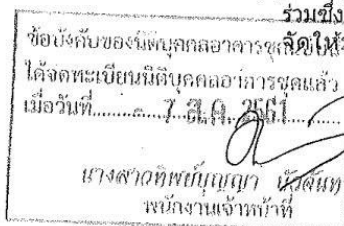 ร่วมซึ่ง
จัดให้
ข้อบังคับของนิติบุคคลอาคารชุด
ได้จดทะเบียนนิติบุคคลอาคารชุดแล้ว
เมื่อวันที่ 7 ส.ค. 2561
นางสาวทิพย์บุญญา
พนักงานเจ้าหน้าที่